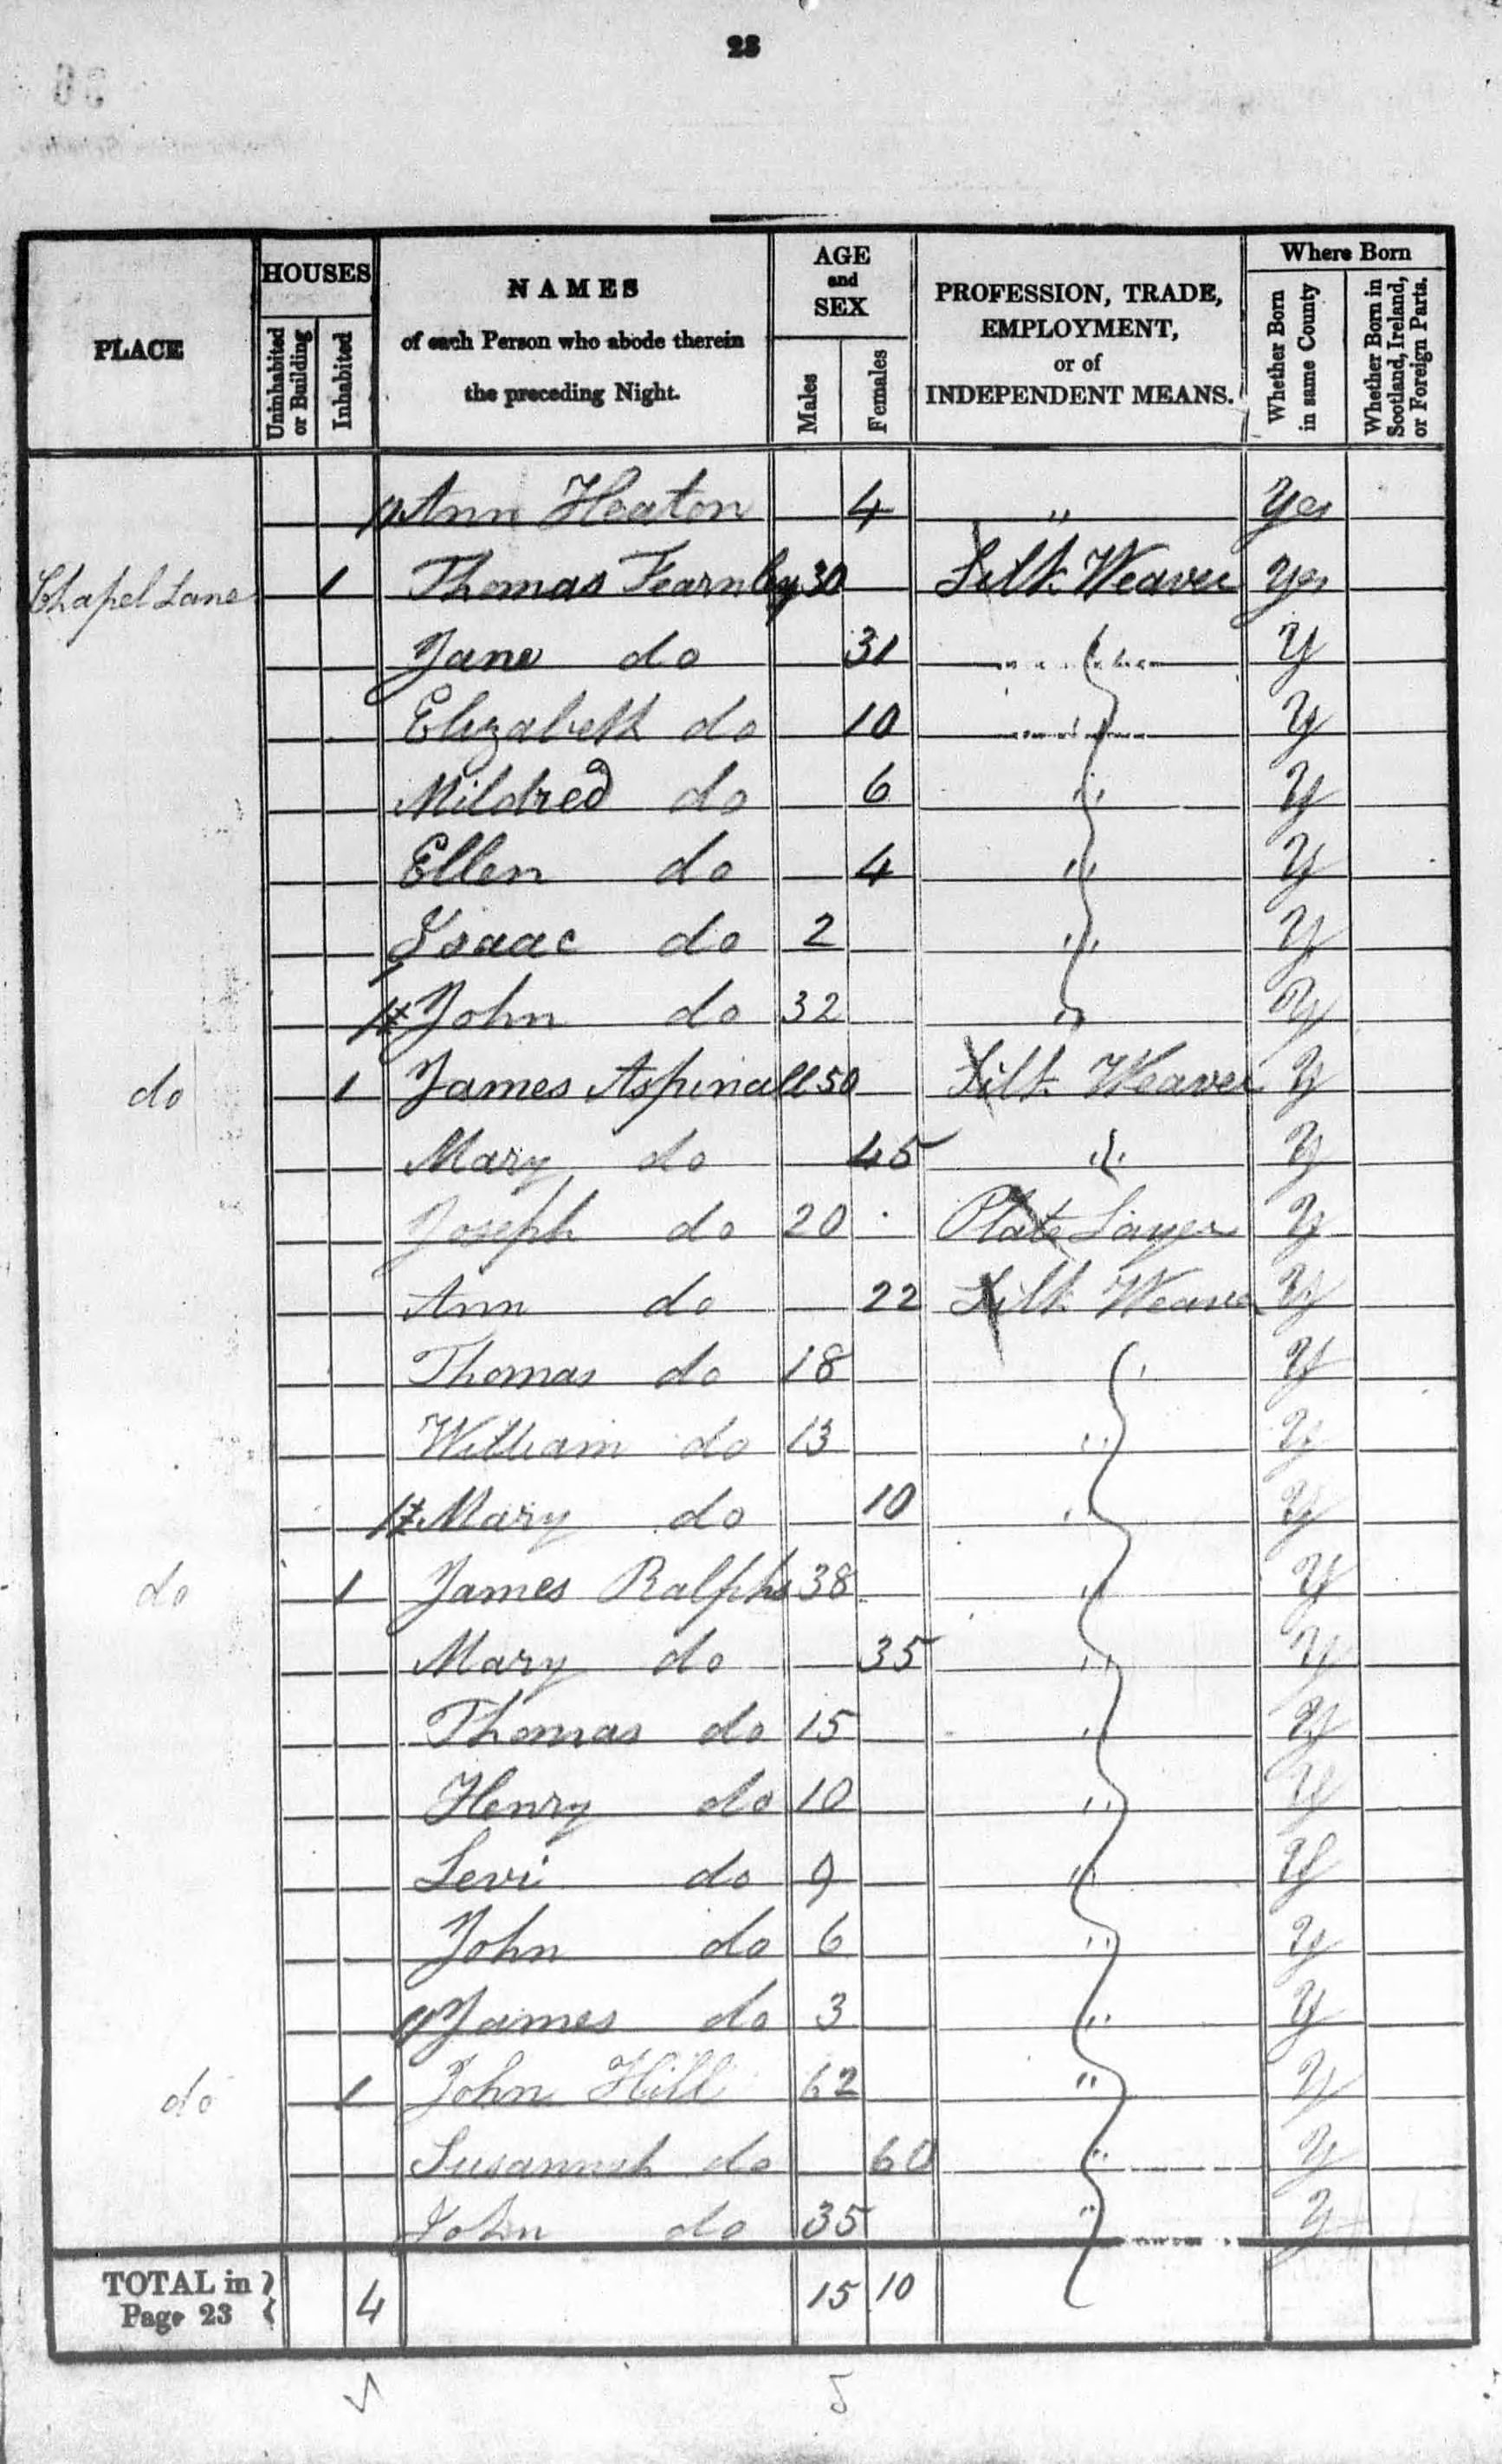 23
PLACE
HOUSES
Uninhabited or Building
Inhabited
NAMES
of each Person who abode therein
the preceding Night.
AGE
and
SEX
Males
Females
PROFESSION, TRADE,
EMPLOYMENT,
or of
INDEPENDENT MEANS.
Where Born
Whether Born in same County
Whether Born in Scotland, Ireland, or Foreign Parts.
Ann Heaton 4 " Yes
Chapel Lane 1 Thomas Fearnley 30 Silk Weaver Yes
Jane do 31 " Y
Elizabeth do 10 " Y
Mildred do 6 " Y
Ellen do 4 " Y
Isaac do 2 " Y
John do 32 " Y
do 1 James Aspinall 50 Silk Weaver Y
Mary do 45 " Y
Joseph do 20 Plate Layer Y
Ann do 22 Silk Weaver Y
Thomas do 18 " Y
William do 13 " Y
Mary do 10 " Y
do 1 James Ralphs 38 " Y
Mary do 35 " Y
Thomas do 15 " Y
Henry do 10 " Y
Levi do 9 " Y
John do 6 " Y
James do 3 " Y
do 1 John Hill 62 " Y
Susannah do 60 " Y
John do 35 " Y
TOTAL in Page 23 4 15 10
5